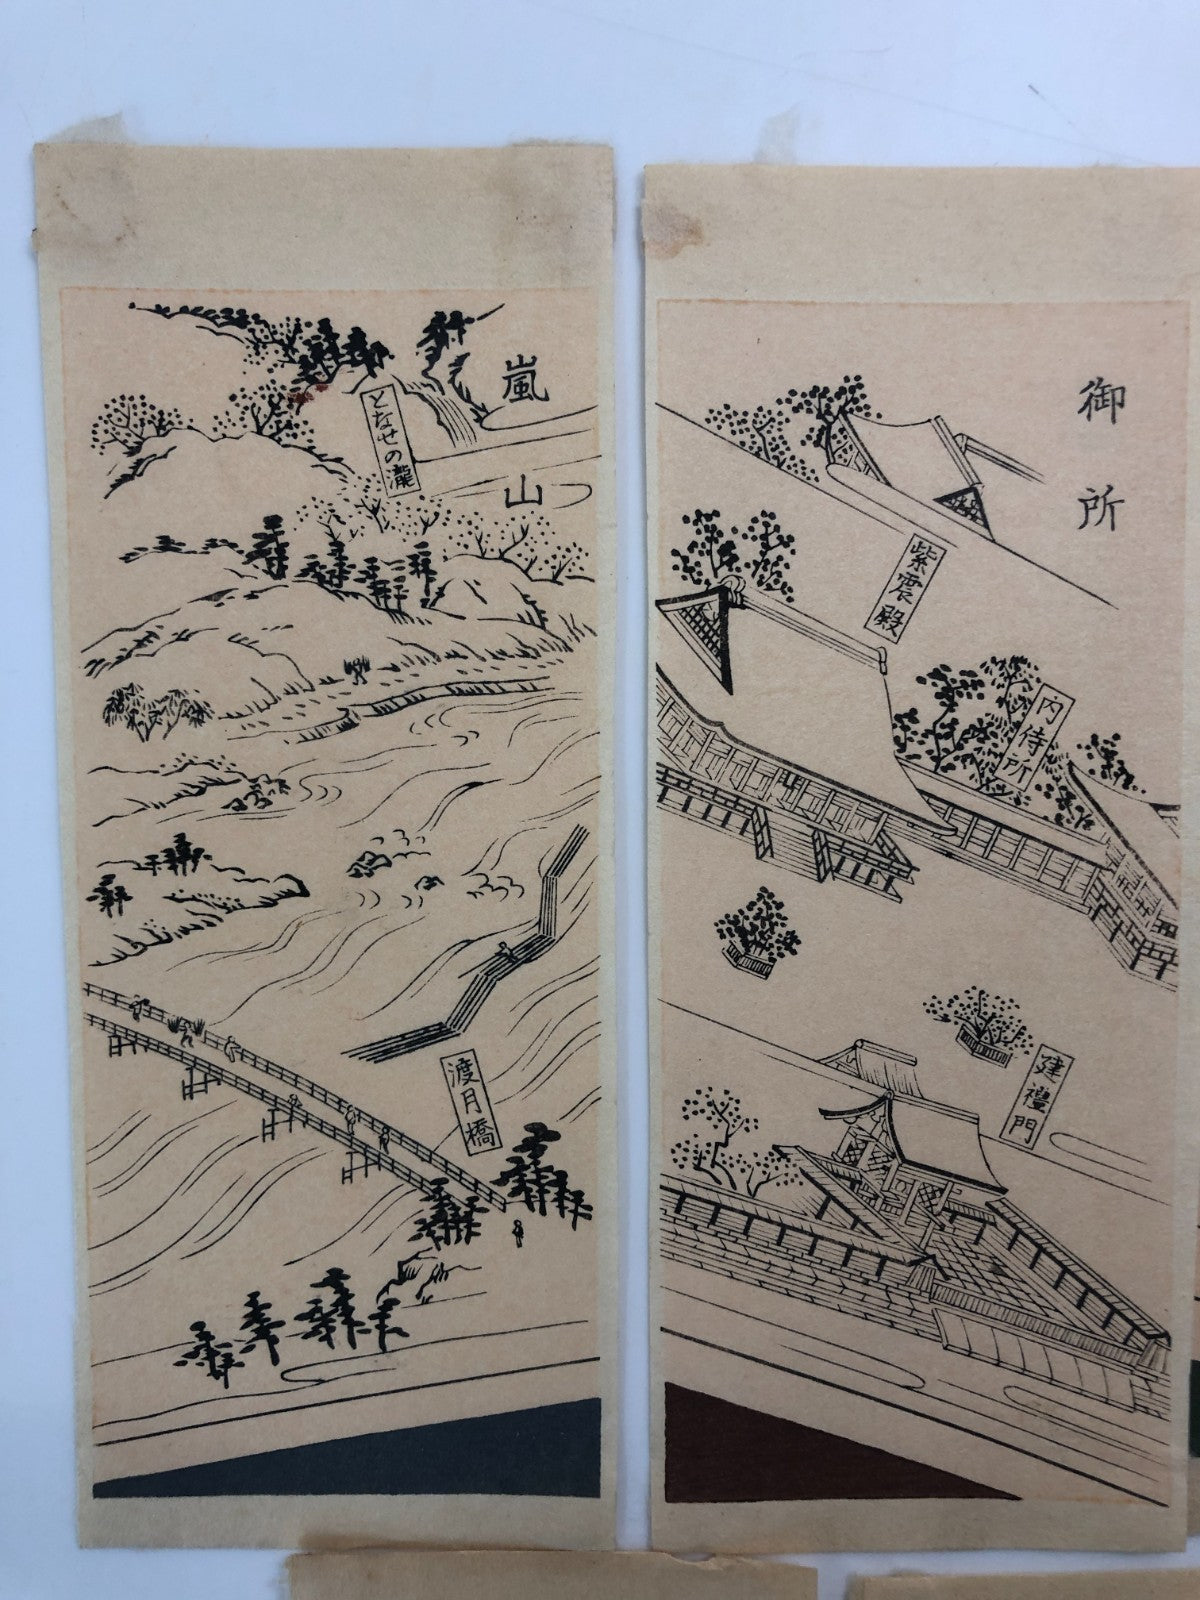 嵐山
となせの瀧
渡月橋
御所
紫宸殿
内侍所
建禮門